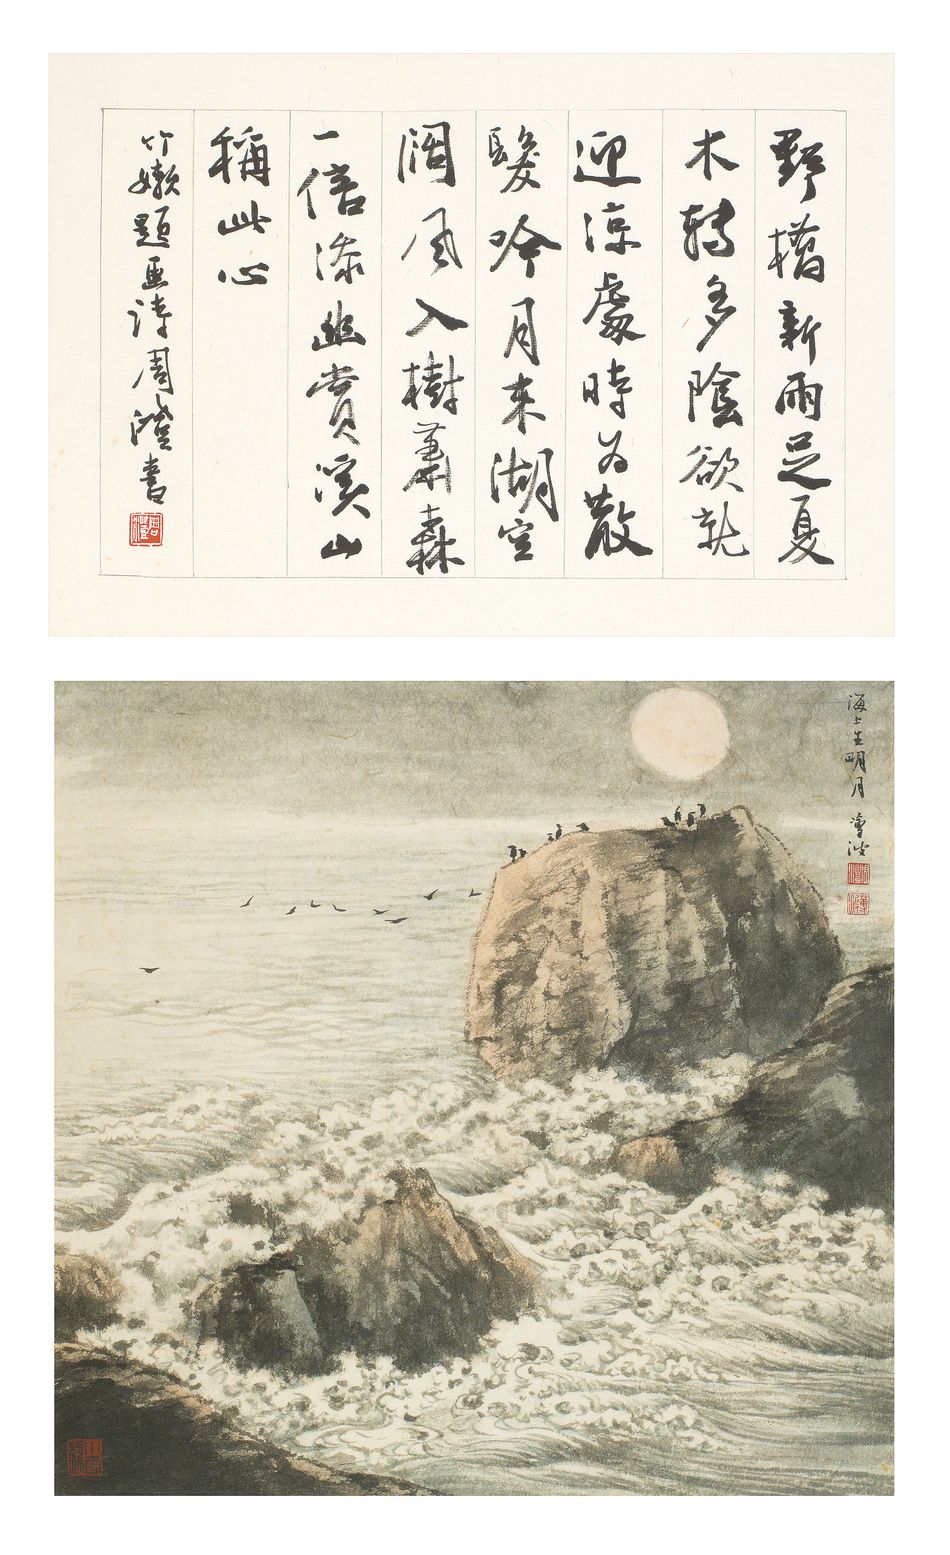 野橋新雨足夏
木轉多陰欲就
迎涼處時為散
髮吟月來湖空
闊風入樹蕭森
一倍添幽賞溪山
稱此心
竹嬾題畫詩周澄書
周澄
海上生明月 蓴波